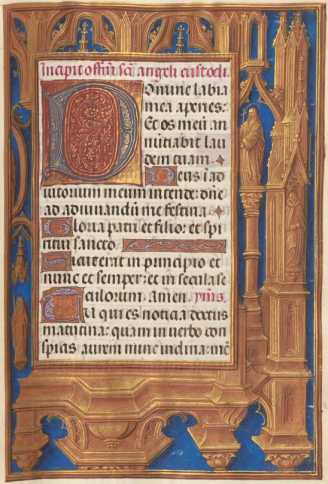 Incipit offm̄ scī angeli custodi.
Domine labia
mea aperies:
Et os meū an
nūtiabit lau
dem tuam.
Deus ī ad
iutorium meum intende: dn̄e
ad adiuuandū me festina
Gloria patri et filio: et spi
ritui sancto.
Sicut erat in principio et
nunc et semper: et in secula se
culorum. amen. ymn̄s.
qui es
matutina: quam in verbo con
spicis aurem nunc inclina: me